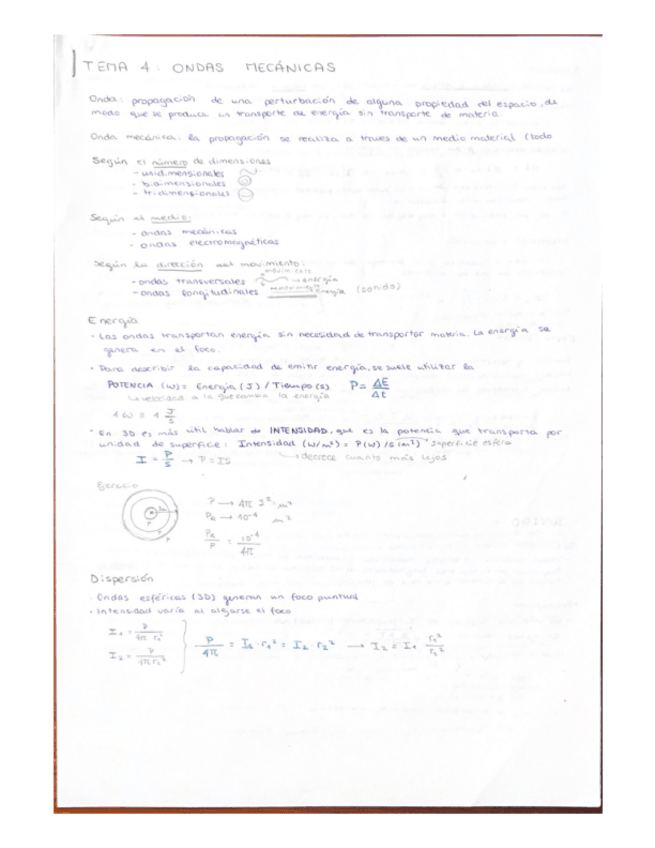 TEMA 4: ONDAS MECÁNICAS
Onda: propagación de una perturbación de alguna propiedad del espacio, de
modo que se produce un transporte de energía sin transporte de materia.
Onda mecánica: la propagación se realiza a traves de un medio material (todo
Según el número de dimensiones
- unidimensionales
- bidimensionales
- tridimensionales
Según el medio:
- ondas mecánicas
- ondas electromagnéticas
Según la dirección del movimiento:
- ondas transversales movimiento → energía
- ondas longitudinales movimiento energía (sonido)
Energía
· Las ondas transportan energía sin necesidad de transportar materia. La energía se
genera en el foco.
· Para describir la capacidad de emitir energía, se suele utilizar la
POTENCIA (W) = Energía (J) / Tiempo (s) P = ΔE/Δt
↳ velocidad a la que cambia la energía
1 W = 1 J/s
· En 3D es más útil hablar de INTENSIDAD, que es la potencia que transporta por
unidad de superficie: Intensidad (W/m²) = P(W) / S(m²) → superficie esfera
I = P/S → P = IS ↳ decrece cuanto más lejos
Ejercicio
P → 4π m²
P_R → 10⁻⁴ m²
P_R/P = 10⁻⁴/4π
Dispersión
· Ondas esféricas (3D) generan un foco puntual
· Intensidad varía al alejarse el foco
I₁ = P/4π r₁²
I₂ = P/4π r₂²
P/4π = I₁ · r₁² = I₂ · r₂² → I₂ = I₁ r₁²/r₂²